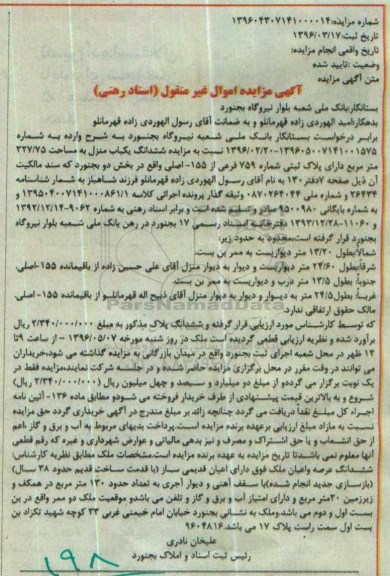 شماره مزایده:۱۳۹۶۰۴۳۰۷۱۴۱۰۰۰۰۱۴
تاریخ ثبت:۱۳۹۶/۰۳/۱۷
تاریخ واقعی انجام مزایده:
وضعیت :تایید شده
متن آگهی مزایده
آگهی مزایده اموال غیر منقول (اسناد رهنی)
بستانکار:بانک ملی شعبه بلوار نیروگاه بجنورد
بدهکار:امید الهوردی زاده قهرمانلو و به ضمانت آقای رسول الهوردی زاده قهرمانلو
برابر درخواست بستانکار بانک ملی شعبه نیروگاه بجنورد به شرح وارده به شماره
۱۳۹۶۰۵۰۰۷۱۴۱۰۰۱۵۷۵-۱۳۹۶/۰۲/۲۰ نسبت به مزایده ششدانگ یکباب منزل به مساحت ۳۲۷/۷۵
متر مربع دارای پلاک ثبتی شماره ۷۵۹ فرعی از ۱۵۵- اصلی واقع در بخش دو بجنورد که سند مالکیت
آن ذیل صفحه ۷دفتر۱۳۰ به نام آقای رسول الهوردی زاده قهرمانلو فرزند شاهباز به شمار شناسنامه
۲۶۴۳۴ و شماره ملی ۰۸۷۰۲۶۴۰۴۴ وثیقه گذار پرونده اجرائی کلاسه ۱۳۹۵۰۴۰۰۷۱۴۱۰۰۰۸۶۱/۱ و
به شماره بایگانی ۹۵۰۰۹۸۰ صادر و تسلیم شده است و برابر اسناد رهنی به شماره ۹۰۶۲-۱۳۹۲/۱۲/۱۴
و ۱۱۰۶۰-۱۳۹۳/۱۲/۲۸ دفترخانه اسناد رسمی ۱۷ بجنورد در رهن بانک ملی شعبه بلوار نیروگاه
بجنورد قرار گرفته است،محدود به حدود زیر:
شمالا:بطول ۱۳/۲۰ متر دیواریست به ممر بن بست.
شرقا:بطول ۲۴/۶۰ متر دیواریست و دیوار به دیوار منزل آقای علی حسین زاده از باقیمانده ۱۵۵-اصلی.
جنوبا: بطول ۱۳/۵ متر درب و دیواریست به ممر بن بست
غربا: بطول۲۴/۵ متر به دیوار و دیوار به دیوار منزل آقای ذبیح اله قهرمانلو از باقیمانده ۱۵۵- اصلی.
مالک حقوق ارتفاقی ندارد.
که توسط کارشناس مورد ارزیابی قرار گرفته و ششدانگ پلاک مذکور به مبلغ ۲/۳۴۰/۰۰۰/۰۰۰ ریال
برآورد شده و نظریه ارزیابی قطعی گردیده است ملک در روز شنبه مورخه ۱۳۹۶/۰۵/۰۷ - از ساعت ۹تا
۱۲ ظهر در محل شعبه اجرای ثبت بجنورد واقع در میدان بازرگانی به مزایده گذاشته می شود،خریداران
می توانند در وقت مقرر در محل برگزاری مزایده حاضر شده و در جلسه شرکت نمایند،مزایده فقط در
یک نوبت برگزار می گردد،و از مبلغ دو میلیارد و سیصد و چهل میلیون ریال (۲/۳۴۰/۰۰۰/۰۰۰ ریال)
شروع و به بالاترین قیمت پیشنهادی از طرف خریدار فروخته می شود،و مطابق ماده ۱۳۶- آئین نامه
اجراء کل مبلغ نقدا دریافت می گردد چنانچه زائد بر مبلغ مندرج در آگهی خریداری گردد حق مزایده
نسبت به مازاد مبلغ ارزیابی برعهده برنده مزایده است.پرداخت بدهیهای مربوط به آب و برق و گاز باعم
از حق انشعاب و یا حق اشتراک و مصرف و نیز بدهی مالیاتی و عوارض شهرداری و غیره که رقم قطعی
آنها معلوم نمی باشدتا تاریخ مزایده به عهده برنده مزایده است.مشخصات ملک مطابق نظریه کارشناس:
ششدانگ عرصه واعیان ملک فوق دارای اعیان قدیمی ساز (با قدمت ساخت قدیم حدود ۳۸ سال)
(بازسازی جدید انجام شده)با سقف آهنی و دیوار آجری به تعداد حدود ۱۳۰ متر مربع در همکف و
زیرزمین ۲۰متر مربع و دارای امتیاز آب و برق و گاز و تلفن می باشد،و موقعیت ملک دو ممر واقع در بن
بست اول و دوم می باشد.وملک به نشانی بجنورد خیابان امام خمینی غربی ۳۳ کوچه شهید تکزاد بن
بست اول سمت راست پلاک ۱۷ می باشد.۹۶۰۴۸۱۶
علیخان نادری
رئیس ثبت اسناد و املاک بجنورد
۱۹۸
ParsNamadData